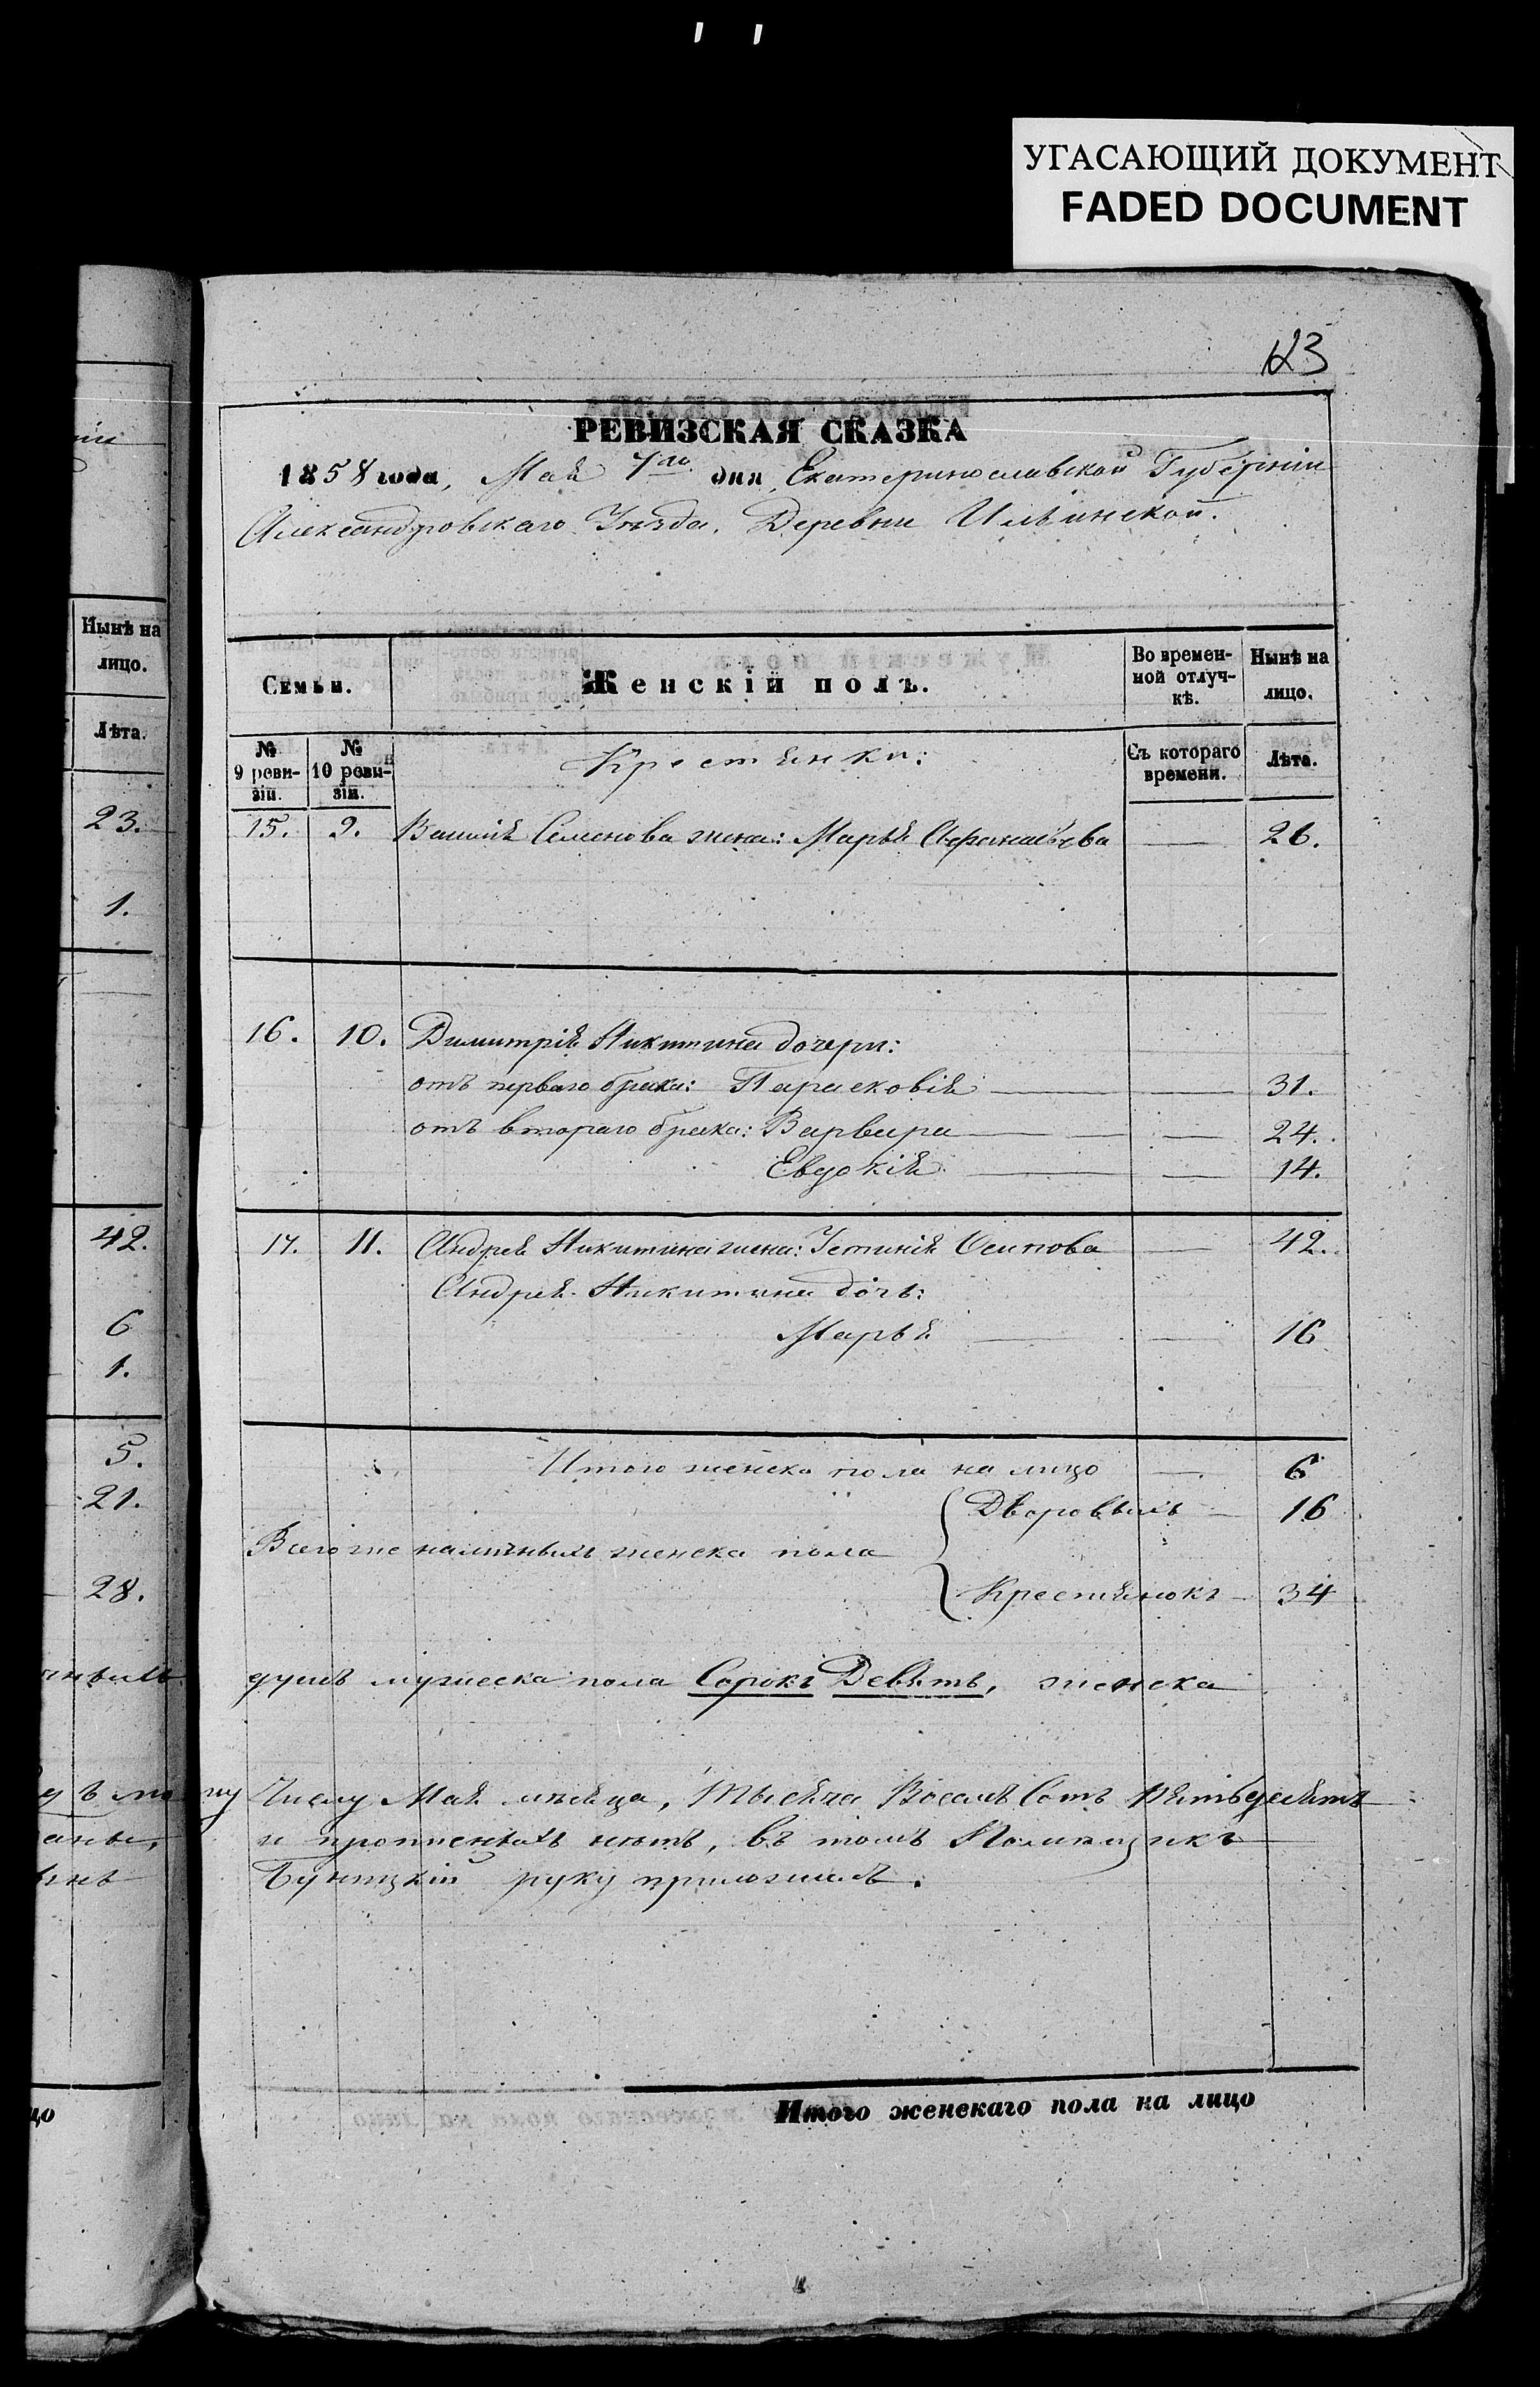 УГАСАЮЩИЙ ДОКУМЕНТ
FADED DOCUMENT
123
РЕВИЗСКАЯ СКАЗКА
1858 года, Мая 7го дня Екатеринославской Губернiи
Александровскаго Уѣзда, Деревни Ильинской.
Семьи.
Женскiй полъ.
Во времен-
ной отлуч-
кѣ.
Нынѣ на
лицо.
№
9 реви-
зiи.
№
10 реви-
зiи.
Крестьянки:
Съ котораго
времени.
Лѣта.
15. 9. Василiя Семенова жена: Марья Афанасьева — 26.
16. 10. Димитрiя Никитина дочери:
отъ перваго брака: Парасковiя — 31.
отъ втораго брака: Варвара — 24.
Евдокiя — 14.
17. 11. Андрея Никитина жена: Устинiя Осипова — 42.
Андрея Никитина дочь:
Марья — 16
Итого женска пола на лицо — 6
Дворовыхъ — 16
Всего же наличныхъ женска пола
Крестьянокъ — 34
душъ мужеска пола Сорокъ Девять, женска
числу Мая мѣсяца, Тысяча Восемь Сотъ Пятьдесятъ
и прописныхъ нѣтъ, въ томъ Помѣщикъ
руку приложилъ.
Итого женскаго пола на лицо
Нынѣ на
лицо.
Лѣта.
23.
1.
42.
6
1.
5.
21.
28.